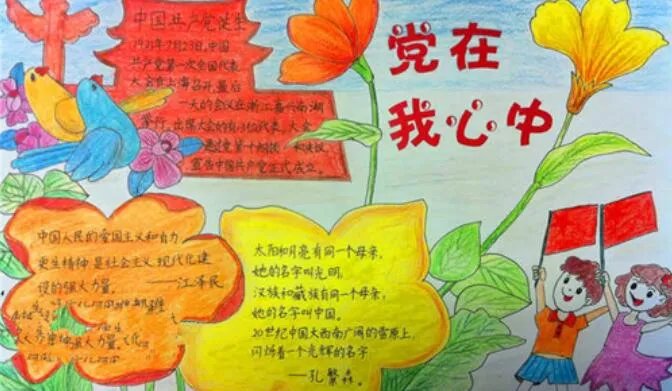 中国共产党诞生
1921年7月23日,中国
共产党第一次全国代表
大会在上海召开,最后
一天的会议在浙江嘉兴南湖
举行,出席大会的有13位代表,大会
通过党第十纲领
宣告中国共产党正式成立。
党在
我心中
中国人民的爱国主义和自力
更生精神是社会主义现代化建
设的强大力量。
——江泽民
太阳和月亮有同一个母亲,
她的名字叫光明,
汉族和藏族有同一个母亲,
她的名字叫中国。
20世纪中国大西南广阔的雪原上,
闪烁着一个光辉的名字
——孔繁森。